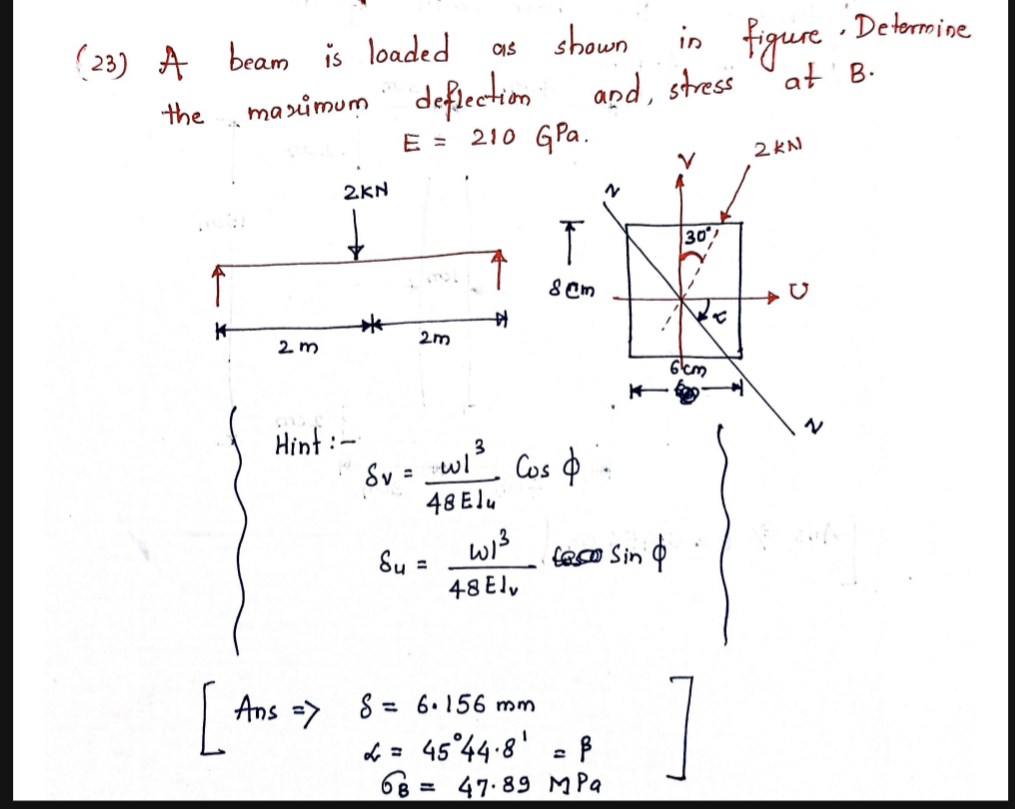 (23) A beam is loaded as shown in figure. Determine
the maximum deflection and, stress at B.
E = 210 GPa.
2KN
2 m
2m
V
2KN
N
30°
8cm
U
α
6cm
N
Hint :-
δv = wl³ / 48EIu Cos ϕ
δu = wl³ / 48EIv Sin ϕ
[ Ans => δ = 6.156 mm
α = 45°44.8' = β
σB = 47.89 MPa ]